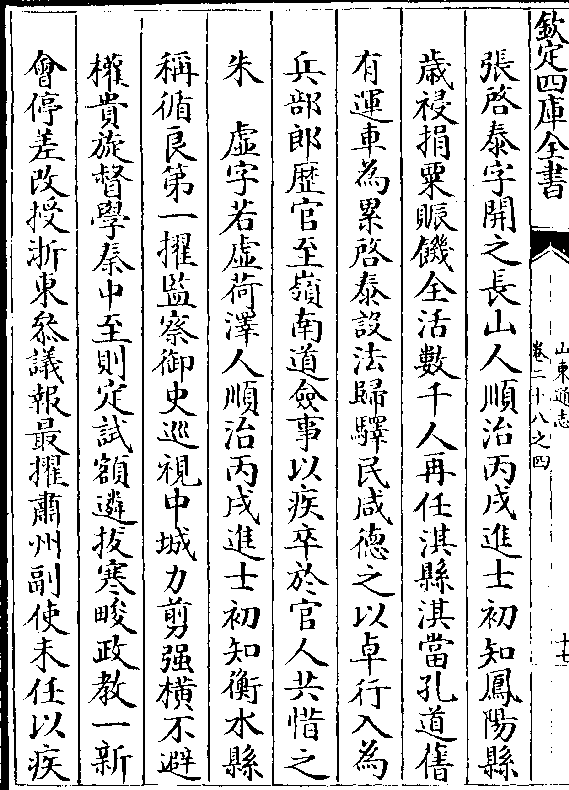 欽定四庫全書
山東通志
卷二十八之四
十七
張啓泰字開之長山人順治丙戌進士初知鳳陽縣
歳祲捐粟賑饑全活數千人再任淇縣淇當孔道舊
有運車為累啓泰設法歸驛民咸德之以卓行入為
兵部郎歴官至嶺南道僉事以疾卒於官人共惜之
朱　虛字若虛荷澤人順治丙戌進士初知衡水縣
稱循良第一擢監察御史巡視中城力剪强横不避
權貴旋督學秦中至則定試額遴拔寒畯政教一新
會停差改授浙東叅議報最擢肅州副使未任以疾